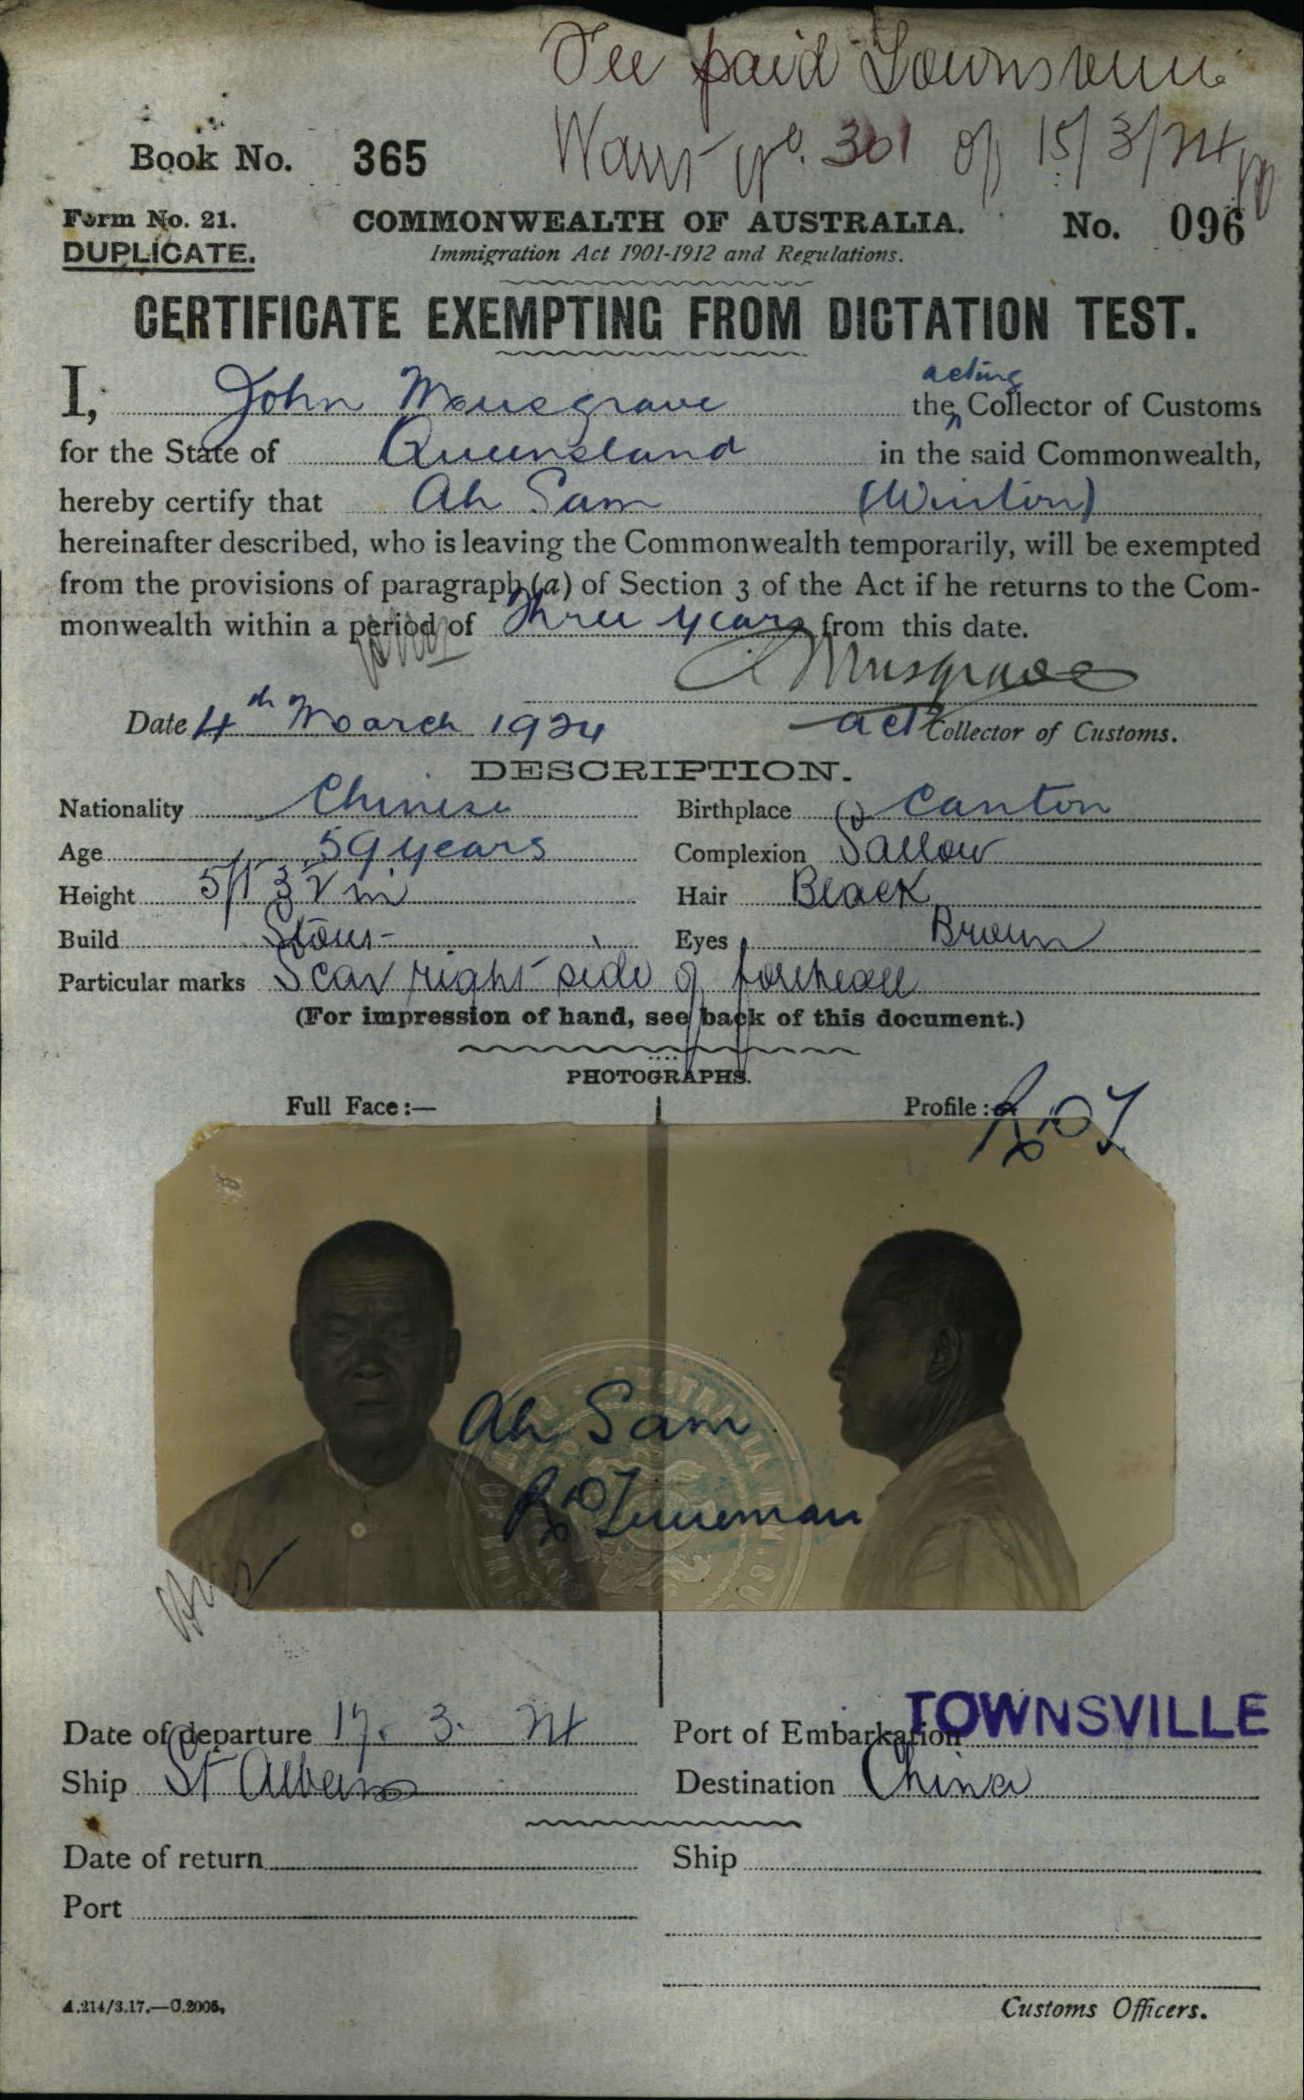 Fee paid Townsville
Warrt No. 301 of 15/3/24
Book No. 365
Form No. 21.
DUPLICATE.
COMMONWEALTH OF AUSTRALIA.
No. 096
Immigration Act 1901-1912 and Regulations.
CERTIFICATE EXEMPTING FROM DICTATION TEST.
acting
I, John Musgrave the Collector of Customs
for the State of Queensland in the said Commonwealth,
hereby certify that Ah Sam (Winton)
hereinafter described, who is leaving the Commonwealth temporarily, will be exempted
from the provisions of paragraph (a) of Section 3 of the Act if he returns to the Com-
monwealth within a period of three years from this date.
Musgrave
Date 4th March 1924 act Collector of Customs.
DESCRIPTION.
Nationality Chinese Birthplace Canton
Age 59 years Complexion Sallow
Height 5ft 3½ in Hair Black
Build Stout Eyes Brown
Particular marks Scar right side of forehead
(For impression of hand, see back of this document.)
PHOTOGRAPHS.
Full Face:— Profile:—
Ah Sam
Date of departure 17. 3. 24 Port of Embarkation TOWNSVILLE
Ship St Albans Destination China
Date of return Ship
Port
A.214/3.17.—C.2005.
Customs Officers.